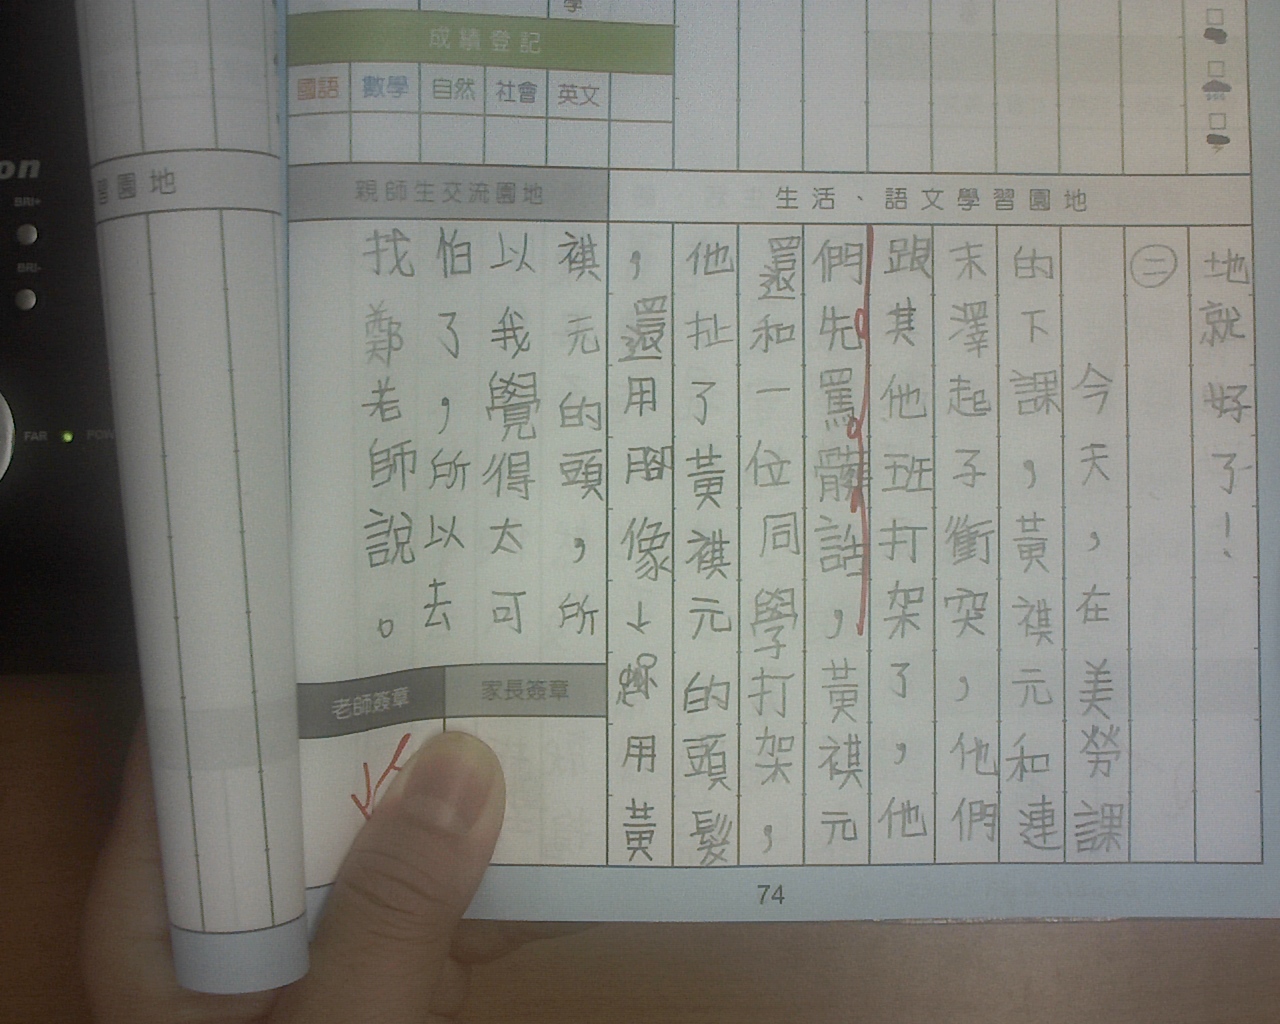 學
成績登記
國語 數學 自然 社會 英文
親師生交流園地
生活、語文學習園地
習園地
地就好了!
㊁
今天,在美勞課
的下課,黃祺元和連
末澤起子衝突,他們
跟其他班打架了,他
們先罵髒話,黃祺元
還和一位同學打架,
他扯了黃祺元的頭髮
,還用腳像用黃
祺元的頭,所
以我覺得太可
怕了,所以去
找鄭老師說。
老師簽章
家長簽章
74
on
BRI+
BRI-
FAR
POW